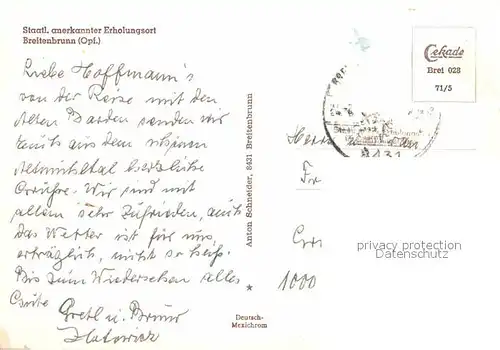 Staatl. anerkannter Erholungsort
Breitenbrunn (Opf.)
Cekade
Brei 028
71/5
Liebe Hoffmann's
von der Reise mit den
Alten senden wir
euch aus dem schönen
Altmühltal herzliche
Grüße. Wir sind mit
allem sehr zufrieden, auch
das Wetter ist für uns
erträglich, nicht so heiß.
Bis zum Wiedersehen alles
Gute
Gretl u. Bruno
Anton Schneider, 8431 Breitenbrunn
8431
Herrn
Fr
1000
privacy protection
Datenschutz
Deutsch-
Mexichrom